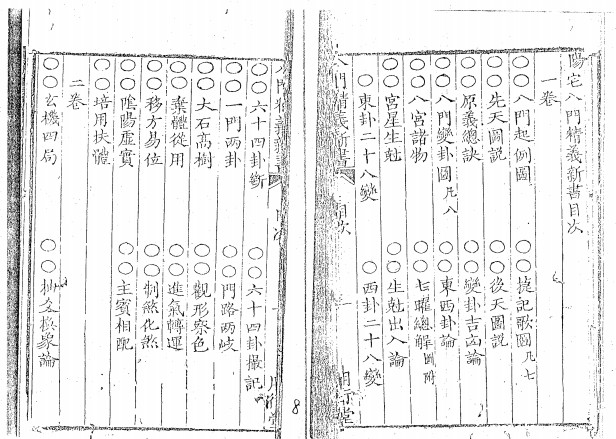 陽宅八門精義新書目次
一卷
○○八門起例圖 ○○捷記歌圖凡七
○○先天圖說 ○○後天圖說
○○原義總訣 ○○變卦吉凶論
○○八門變卦圖凡八 ○○東西卦論
○○八宮諸物 ○○七曜總解圖附
○○宮星生尅 ○○生尅出入論
○東卦二十八變 ○西卦二十八變
八門精義新書 目次
8
○○六十四卦斷 ○○六十四卦撮記
○○一門兩卦 ○○門路兩歧
○○大石高樹 ○○觀形察色
○○棄體從用 ○○進氣轉運
○○移方易位 ○○制煞化煞
○○陰陽虛實 ○○主賓相配
○○培用扶體
二卷
○○玄機四局 ○○抽爻換象論